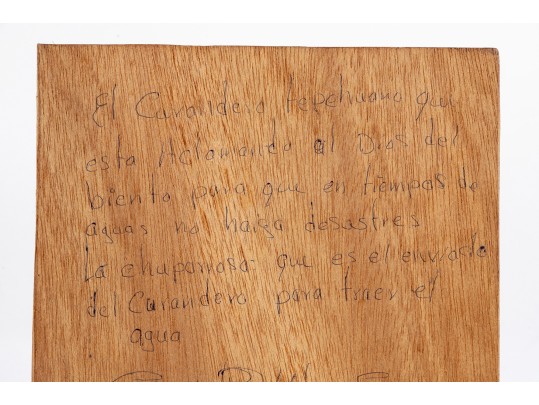 El Curandero tepehuano que
esta Aclamando al Dios del
biento para que en tiempos de
aguas no haiga desastres
La chuparrosa que es el enviado
del Curandero para traer el
agua